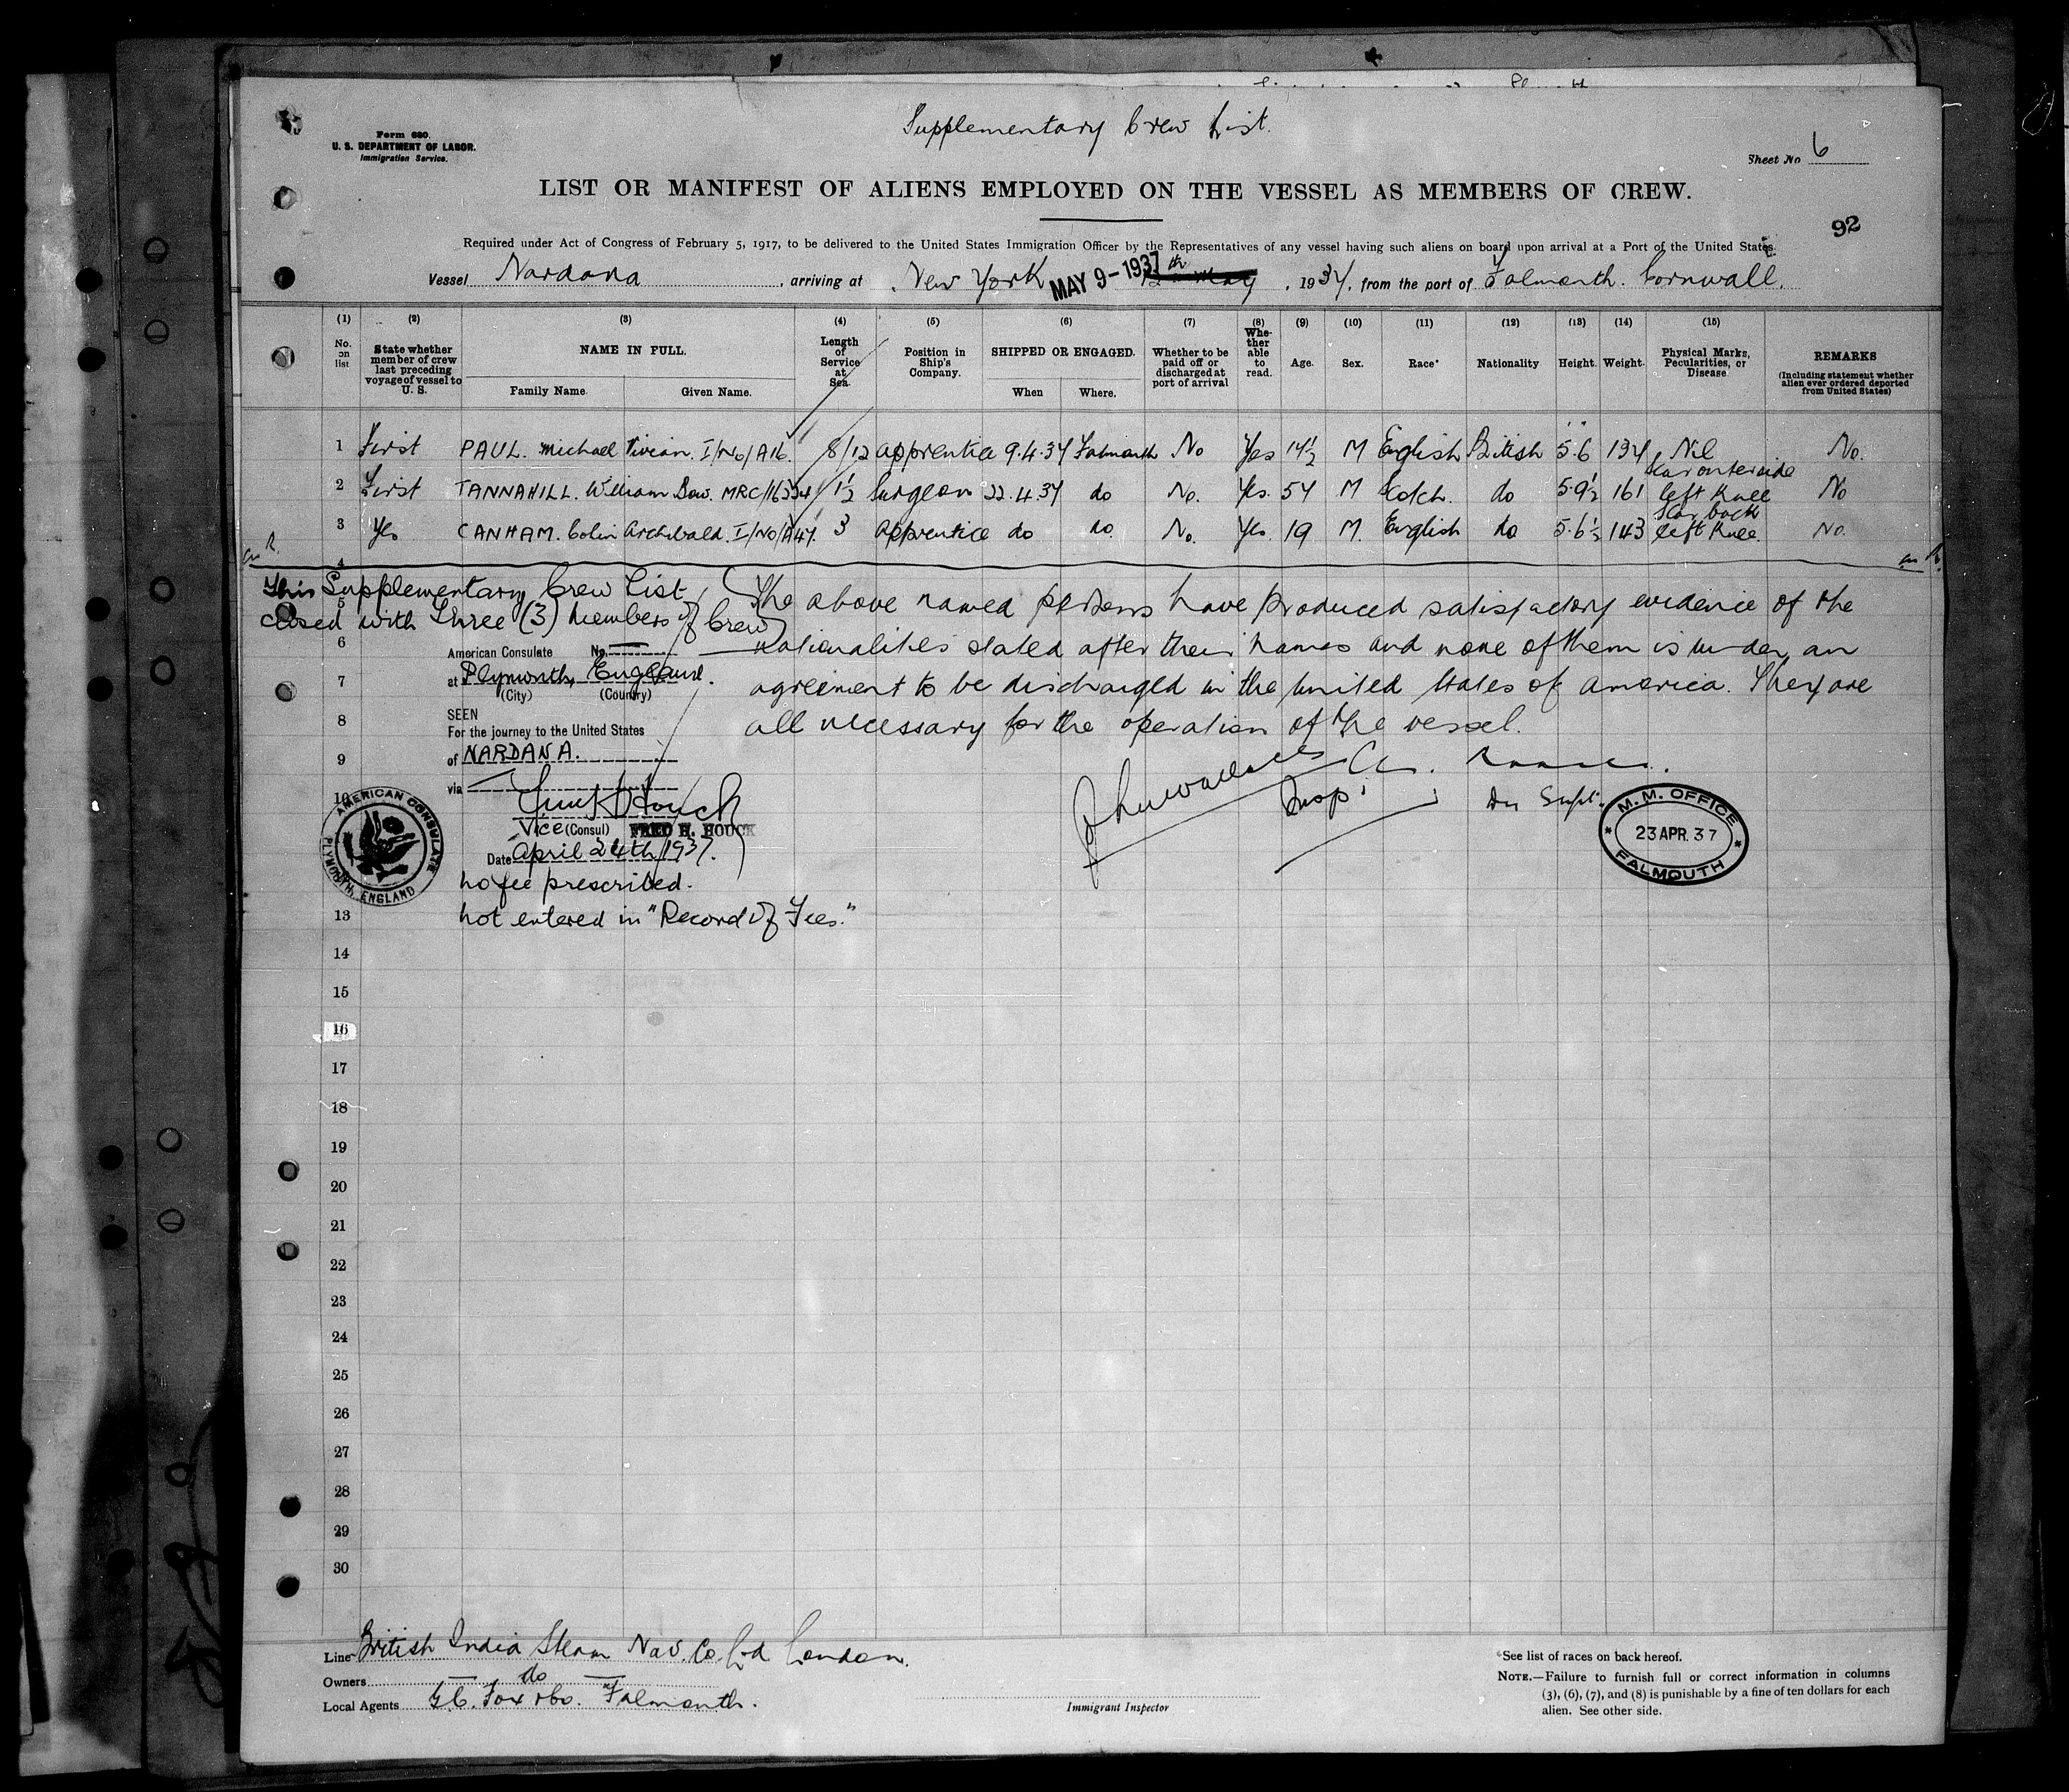 Supplementary Crew List.
Form 680.
U. S. DEPARTMENT OF LABOR.
Immigration Service.
Sheet No 6
LIST OR MANIFEST OF ALIENS EMPLOYED ON THE VESSEL AS MEMBERS OF CREW.
92
Required under Act of Congress of February 5, 1917, to be delivered to the United States Immigration Officer by the Representatives of any vessel having such aliens on board upon arrival at a Port of the United States.
Vessel Nardana, arriving at New York MAY 9-1937 th May, 1937, from the port of Falmouth. Cornwall.
(1) (2) (3) (4) (5) (6) (7) (8) (9) (10) (11) (12) (13) (14) (15)
No. on list
State whether member of crew last preceding voyage of vessel to U. S.
NAME IN FULL.
Family Name. Given Name.
Length of Service at Sea.
Position in Ship's Company.
SHIPPED OR ENGAGED.
When Where.
Whether to be paid off or discharged at port of arrival
Whether able to read.
Age.
Sex.
Race*
Nationality
Height.
Weight.
Physical Marks, Pecularities, or Disease
REMARKS
(Including statement whether alien ever ordered deported from United States)
1 First PAUL. Michael Vivian. I/No/A16. 8/12 apprentice 9.4.37 Falmouth No Yes 14½ M English British 5.6 134 Nil No.
2 First TANNAHILL. William Dow. MRC/116234 1½ Surgeon 22.4.37 do No. Yes. 54 M Scotch. do 5.9½ 161 Scar outerside left Knee No
3 Yes CANHAM. Colin Archibald. I/No/A47. 3 apprentice do do. No. Yes. 19 M. English do 5.6½ 143 Scar back left Knee. No.
4
This Supplementary Crew List
5
closed with Three (3) Members of Crew
The above named persons have produced satisfactory evidence of the
6
nationalities stated after their names and none of them is under an
7
agreement to be discharged in the United States of America. They are
8
all necessary for the operation of the vessel.
American Consulate No.
at Plymouth, England.
(City) (Country)
SEEN
For the journey to the United States
9
of NARDANA.
10
via
Vice (Consul) FRED H. HOUCK
Date April 24th/1937.
no fee prescribed.
13
not entered in "Record of Fees."
AMERICAN CONSULATE
PLYMOUTH, ENGLAND
Insp.
Supt.
M. M. OFFICE
23 APR. 37
FALMOUTH
14
15
16
17
18
19
20
21
22
23
24
25
26
27
28
29
30
Line British India Steam Nav. Co. Ltd London.
Owners do
Local Agents G.C. Fox & Co. Falmouth.
Immigrant Inspector
*See list of races on back hereof.
NOTE.—Failure to furnish full or correct information in columns
(3), (6), (7), and (8) is punishable by a fine of ten dollars for each
alien. See other side.